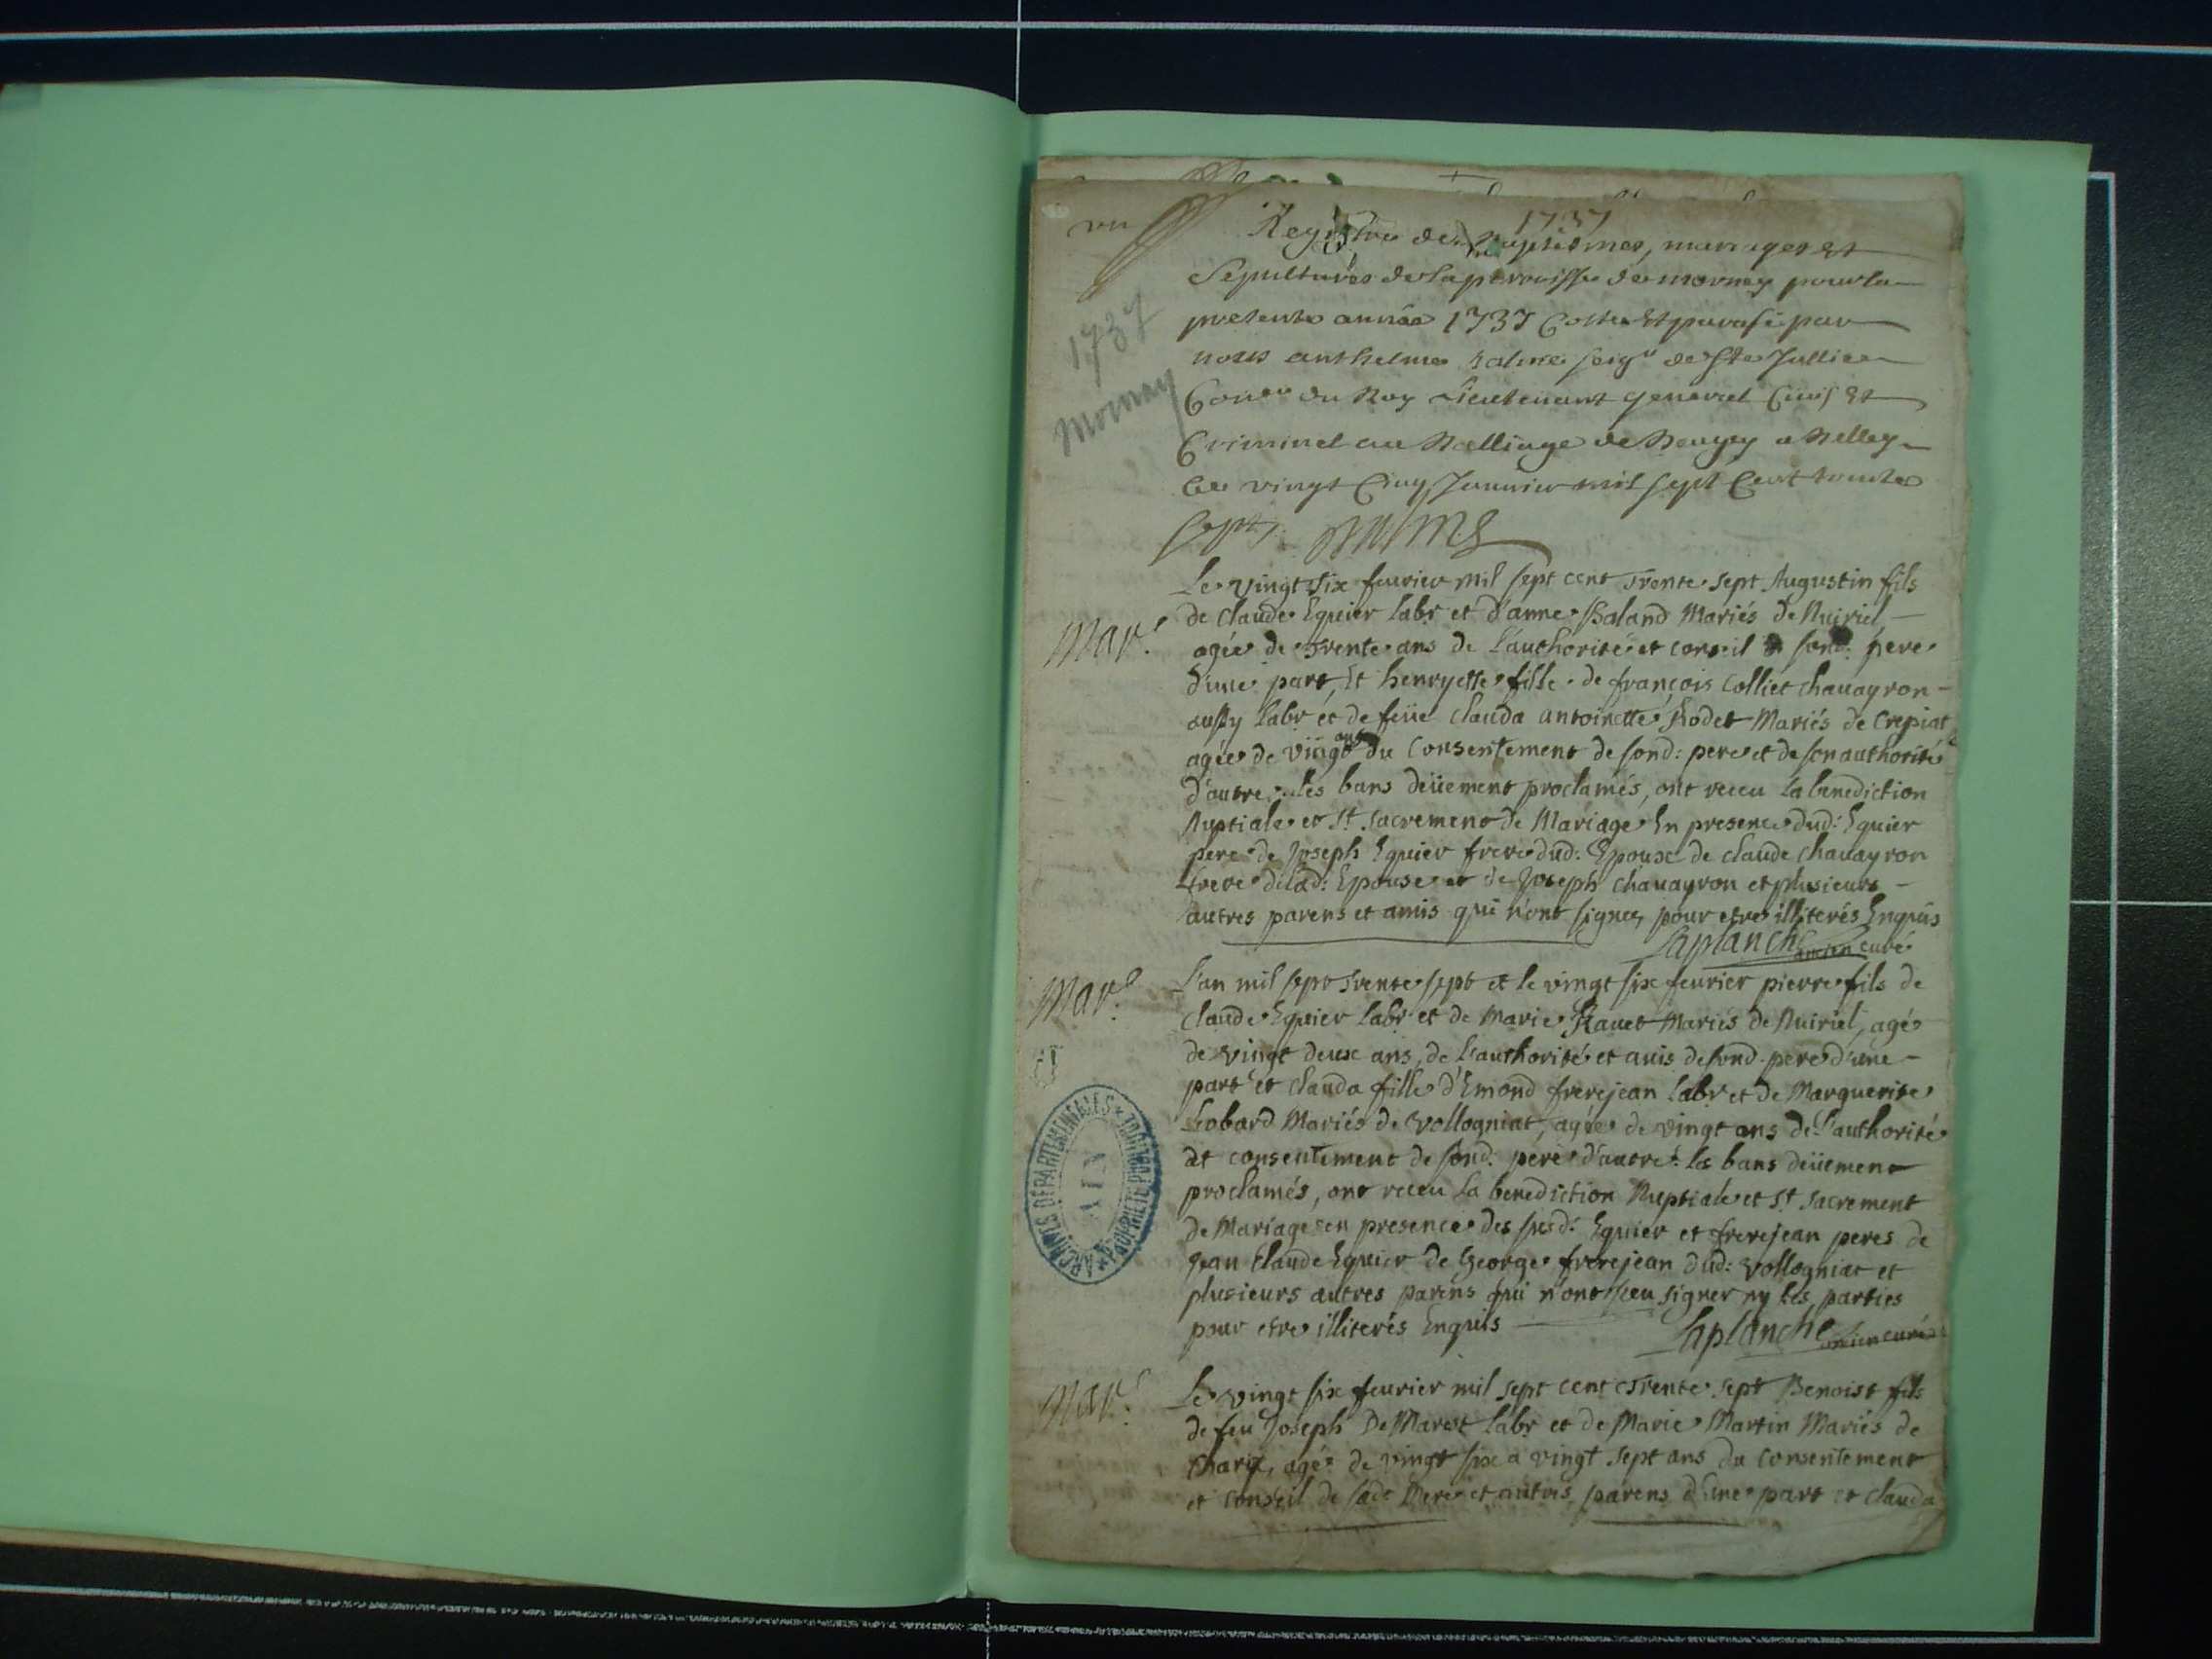 1737
un
Registre des baptesmes, mariages et
Sepultures de la parroisse de mornay pour la
presente année 1737 Cotté Et parafé par
nous anthelme balme seigr de Ste Jullie
Coner du Roy Lieutenant general Civil Et
Criminel au Balliage de Beugey a Belley
le vingt Cinq Janvier mil sept Cent trente
sept. balme
1737
Mornay
Mar.
Le vingt six feurier mil sept cent Trente sept Augustin fils
de Claude Eguier labr et d'anne Baland Mariés de Nuiriel
agée de Trente ans de l'authorité et conseil de sond: pere
d'une part, Et henryette fille de françois Colliet chauayron
aussy labr et de feüe Clauda antoinette Rodet Mariés de Crepiat
agée de vingt ans du Consentement de sond: pere et de son authorité
d'autre, les bans deüement proclamés, ont receu la benediction
Nuptiale et St. Sacrement de Mariage En presence dud: Eguier
pere de Joseph Eguier frere dud: Epoux de claude chauayron
frere de lad: Epouse et de Joseph chauayron et plusieurs
autres parens et amis qui n'ont signez pour etre illiterés Enquis
Laplanche ancien curé
Mar.
L'an mil sept Trente sept et le vingt six feurier pierre fils de
Claude Eguier labr et de Marie Rauet Mariés de Nuiriel, agé
de vingt deux ans, de l'authorité et auis de sond. pere d'une
part et Clauda fille d'Emond frerejean labr et de Marguerite
Gobard Mariés de Vollogniat, agée de vingt ans de l'authorité
et consentement de sond. pere d'autre. les bans deüement
proclamés, ont receu la benediction Nuptiale et St. Sacrement
de Mariage en presence des susd: Eguier et frerejean peres de
Jean Claude Eguier de George frerejean dud: Vollogniat et
plusieurs autres parens qui n'ont sceu signer ny les parties
pour etre illiterés Enquis
Laplanche ancien curé
ARCHIVES DÉPARTEMENTALES
AIN
PROPRIÉTÉ PUBLIQUE
Mar.
Le vingt six feurier mil sept cent Trente sept Benoist fils
de feu Joseph De Marest labr et de Marie Martin Mariés de
Charix, agé de vingt six a vingt sept ans du consentement
et conseil de sade Mere et autres parens d'une part et Clauda